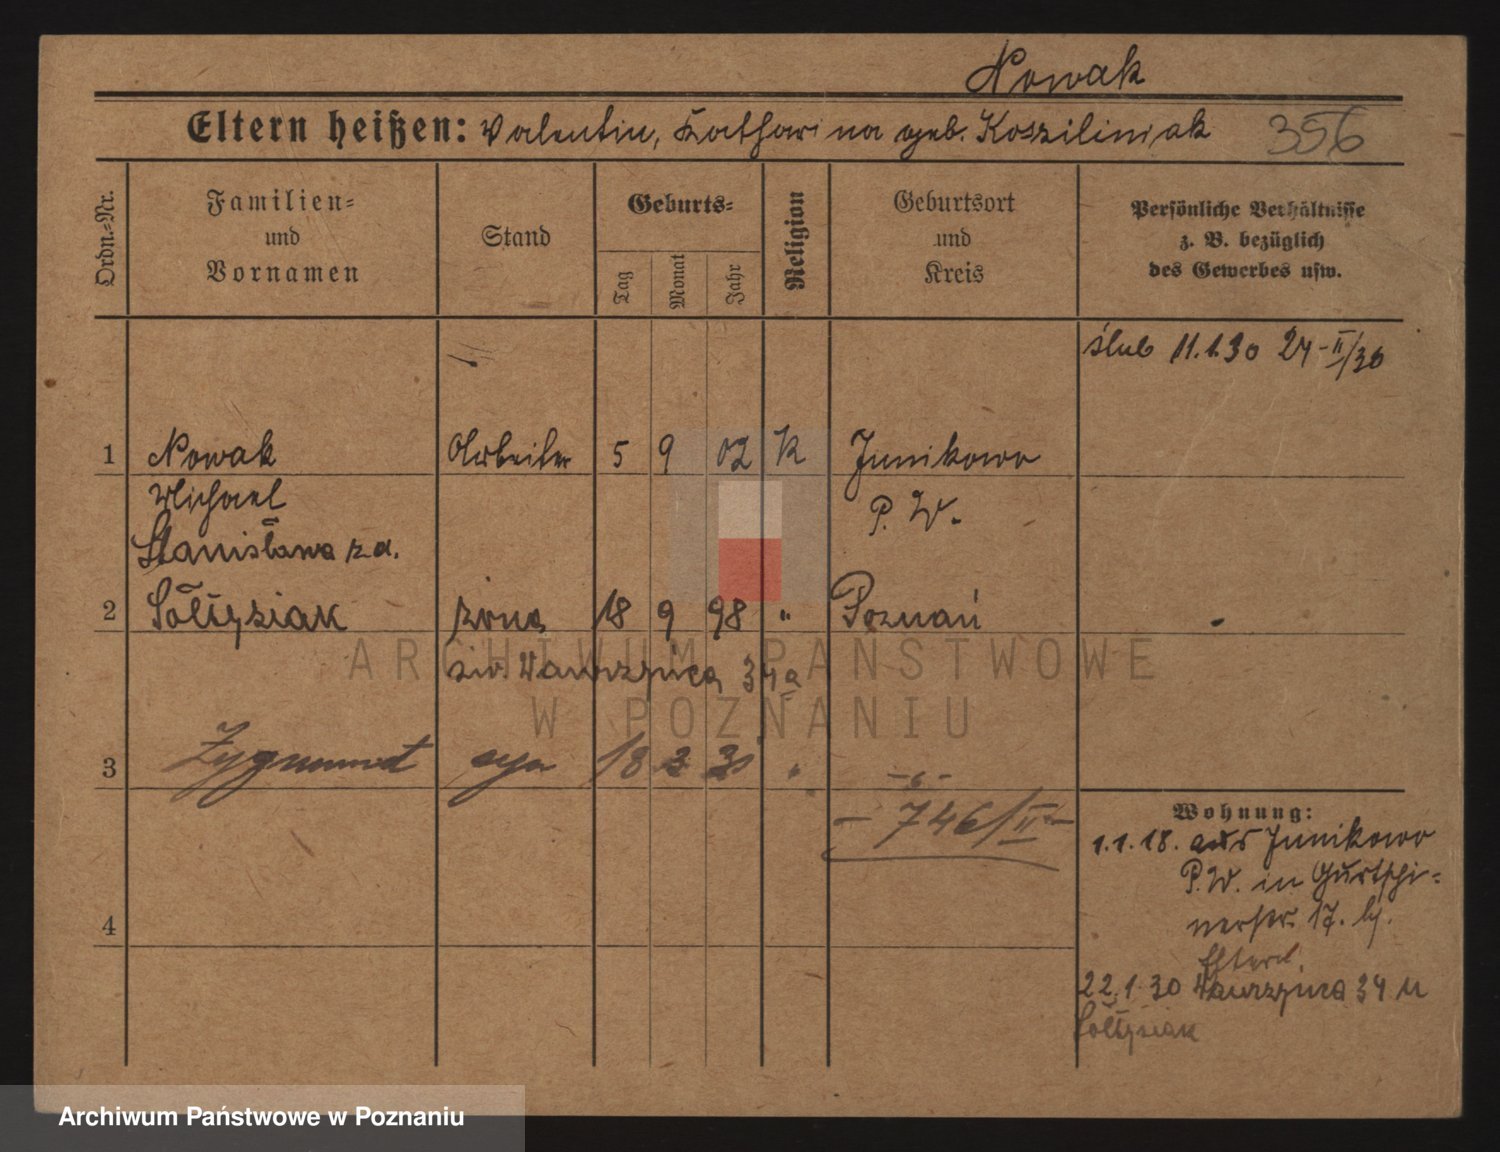 Nowak
Eltern heißen: Valentin, Katharina geb. Kosziliniak 356
Ordn.-Nr.
Familien- und Vornamen
Stand
Geburts-
Tag
Monat
Jahr
Religion
Geburtsort und Kreis
Persönliche Verhältnisse
z. B. bezüglich
des Gewerbes usw.
ślub 11.1.30 24-II/30
1 Nowak Arbeiter 5 9 02 K Junikowo
Michael P. W.
Stanisława z d.
2 Sołtysiak żona 18 9 98 " Poznań
św. Wawrzyńca 34a
3 Zygmunt syn 18 3 30 " -"-
- 746/II -
Wohnung:
1.1.18. aus Junikowo
P.W. in Gurtschi-
nerstr. 17. b/.
Eltern.
4
22.1.30 Wawrzyńca 34 u
Sołtysiak
ARCHIWUM PAŃSTWOWE
W POZNANIU
Archiwum Państwowe w Poznaniu